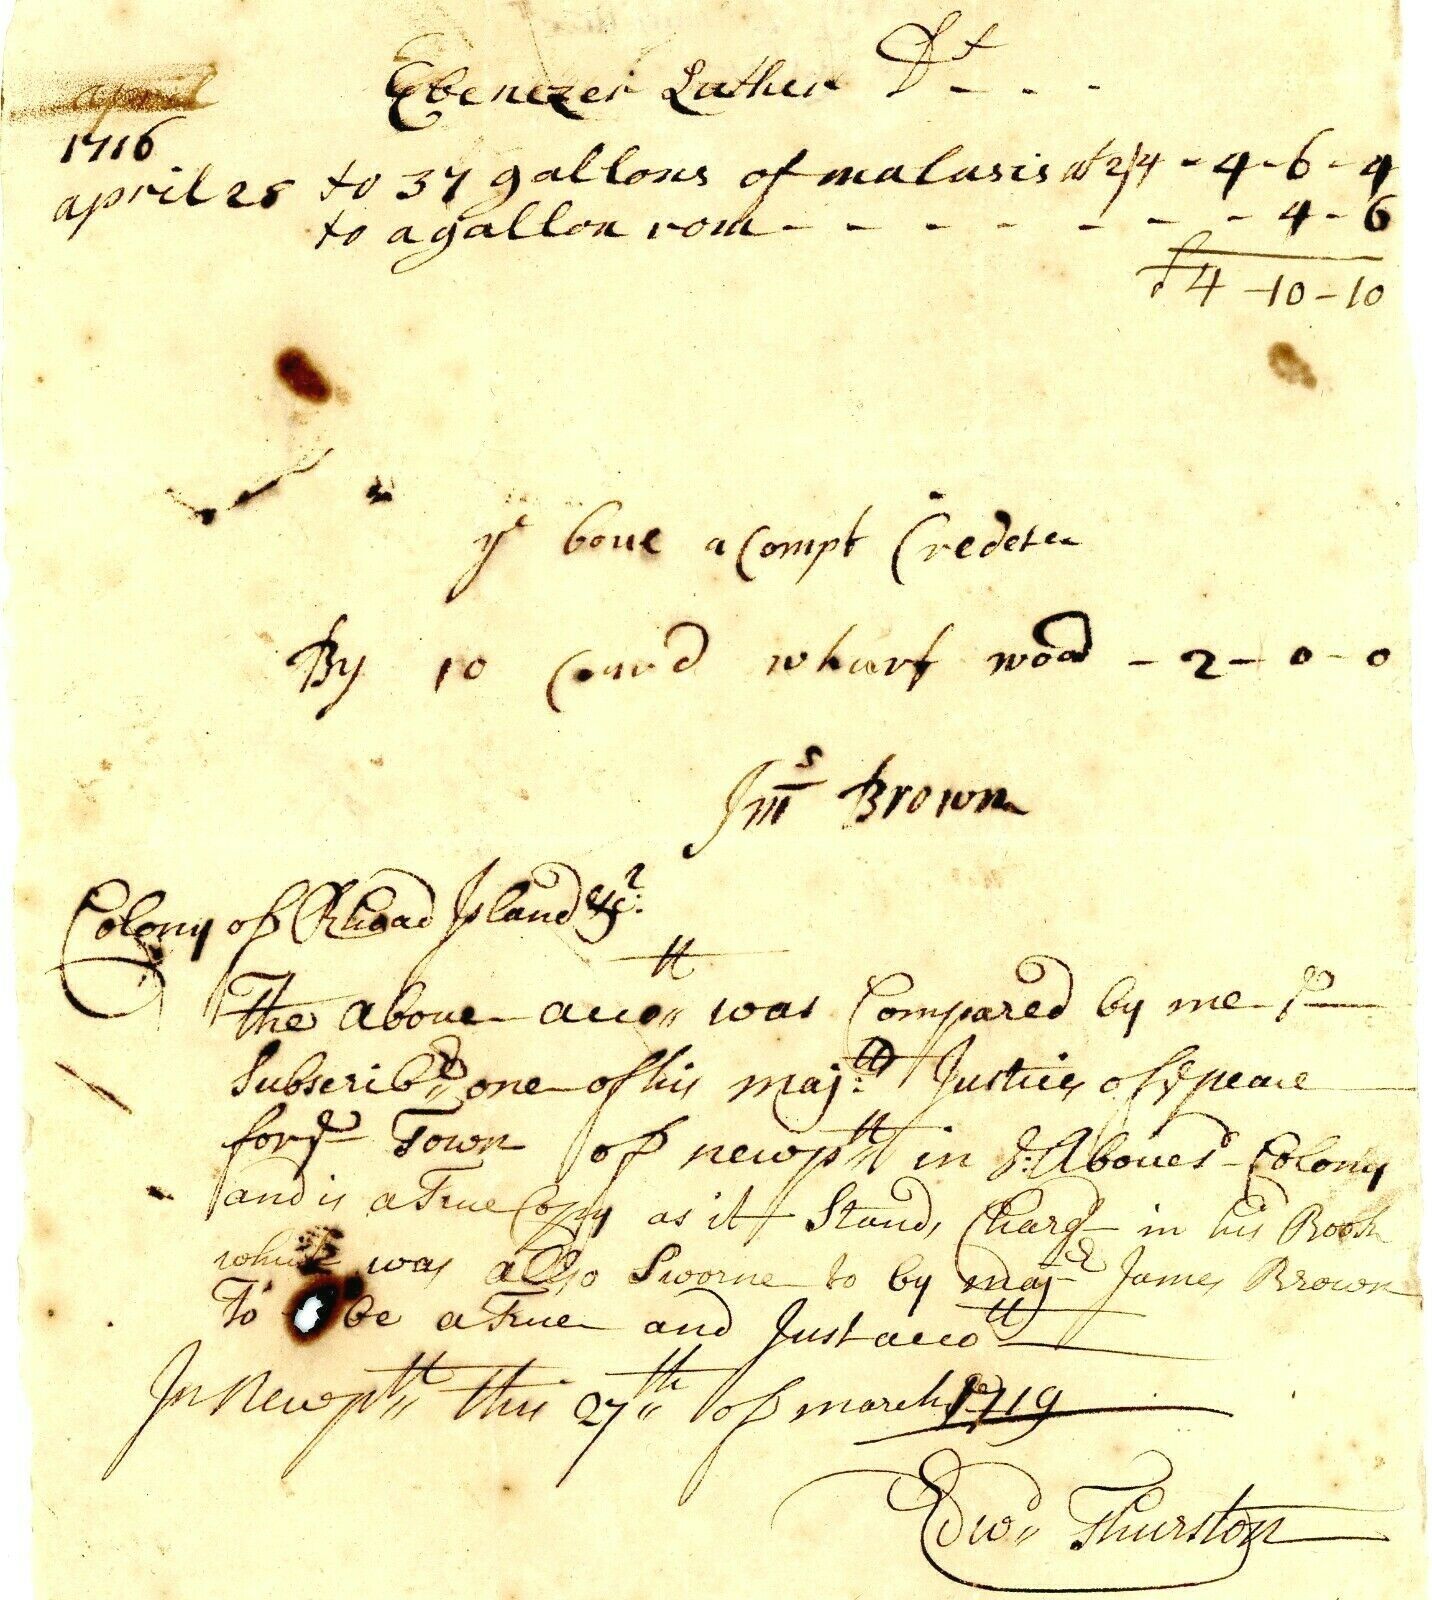 Ebenezer Luther Dt - - -
april
1716
april 28 to 37 gallons of malasis at 2/4 - 4 - 6 - 4
to a gallon rom - - - - - - - 4 - 6
£4 - 10 - 10
ye bove acompt Credeter
By 10 Courd wharf wood - 2 - 0 - 0
Jms Brown
Colony of Rhoad Island &c:
The above accott was Compared by me ye
Subscribr one of his majties Justices of ye peace
for ye Town of newptt in ye Abovesd Colony
and is a True Copy as it Stands Chargd in his Book
which was allso Sworne to by majr James Brown
To be a True and Just accott
In Newptt this 27th of march 1719
Edwd Thurston